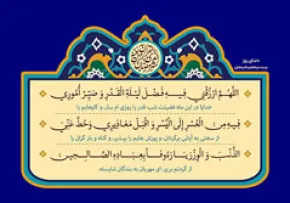 دعای روز
اللَّهُمَّ ارْزُقْنِي فِيهِ فَضْلَ لَيْلَةِ الْقَدْرِ وَ صَيِّرْ أُمُورِي
خدایا در این ماه فضیلت شب قدر را روزی ام ساز، و کارهایم را
فِيهِ مِنَ الْعُسْرِ إِلَى الْيُسْرِ وَ اقْبَلْ مَعَاذِيرِي وَ حُطَّ عَنِّي
از سختی به آسانی برگردان، و پوزش هایم را بپذیر، و گناه و بار گران را
الذَّنْبَ وَ الْوِزْرَ يَا رَءُوفاً بِعِبَادِهِ الصَّالِحِينَ
از گرده‌ام بریز، ای مهربان به بندگان شایسته.